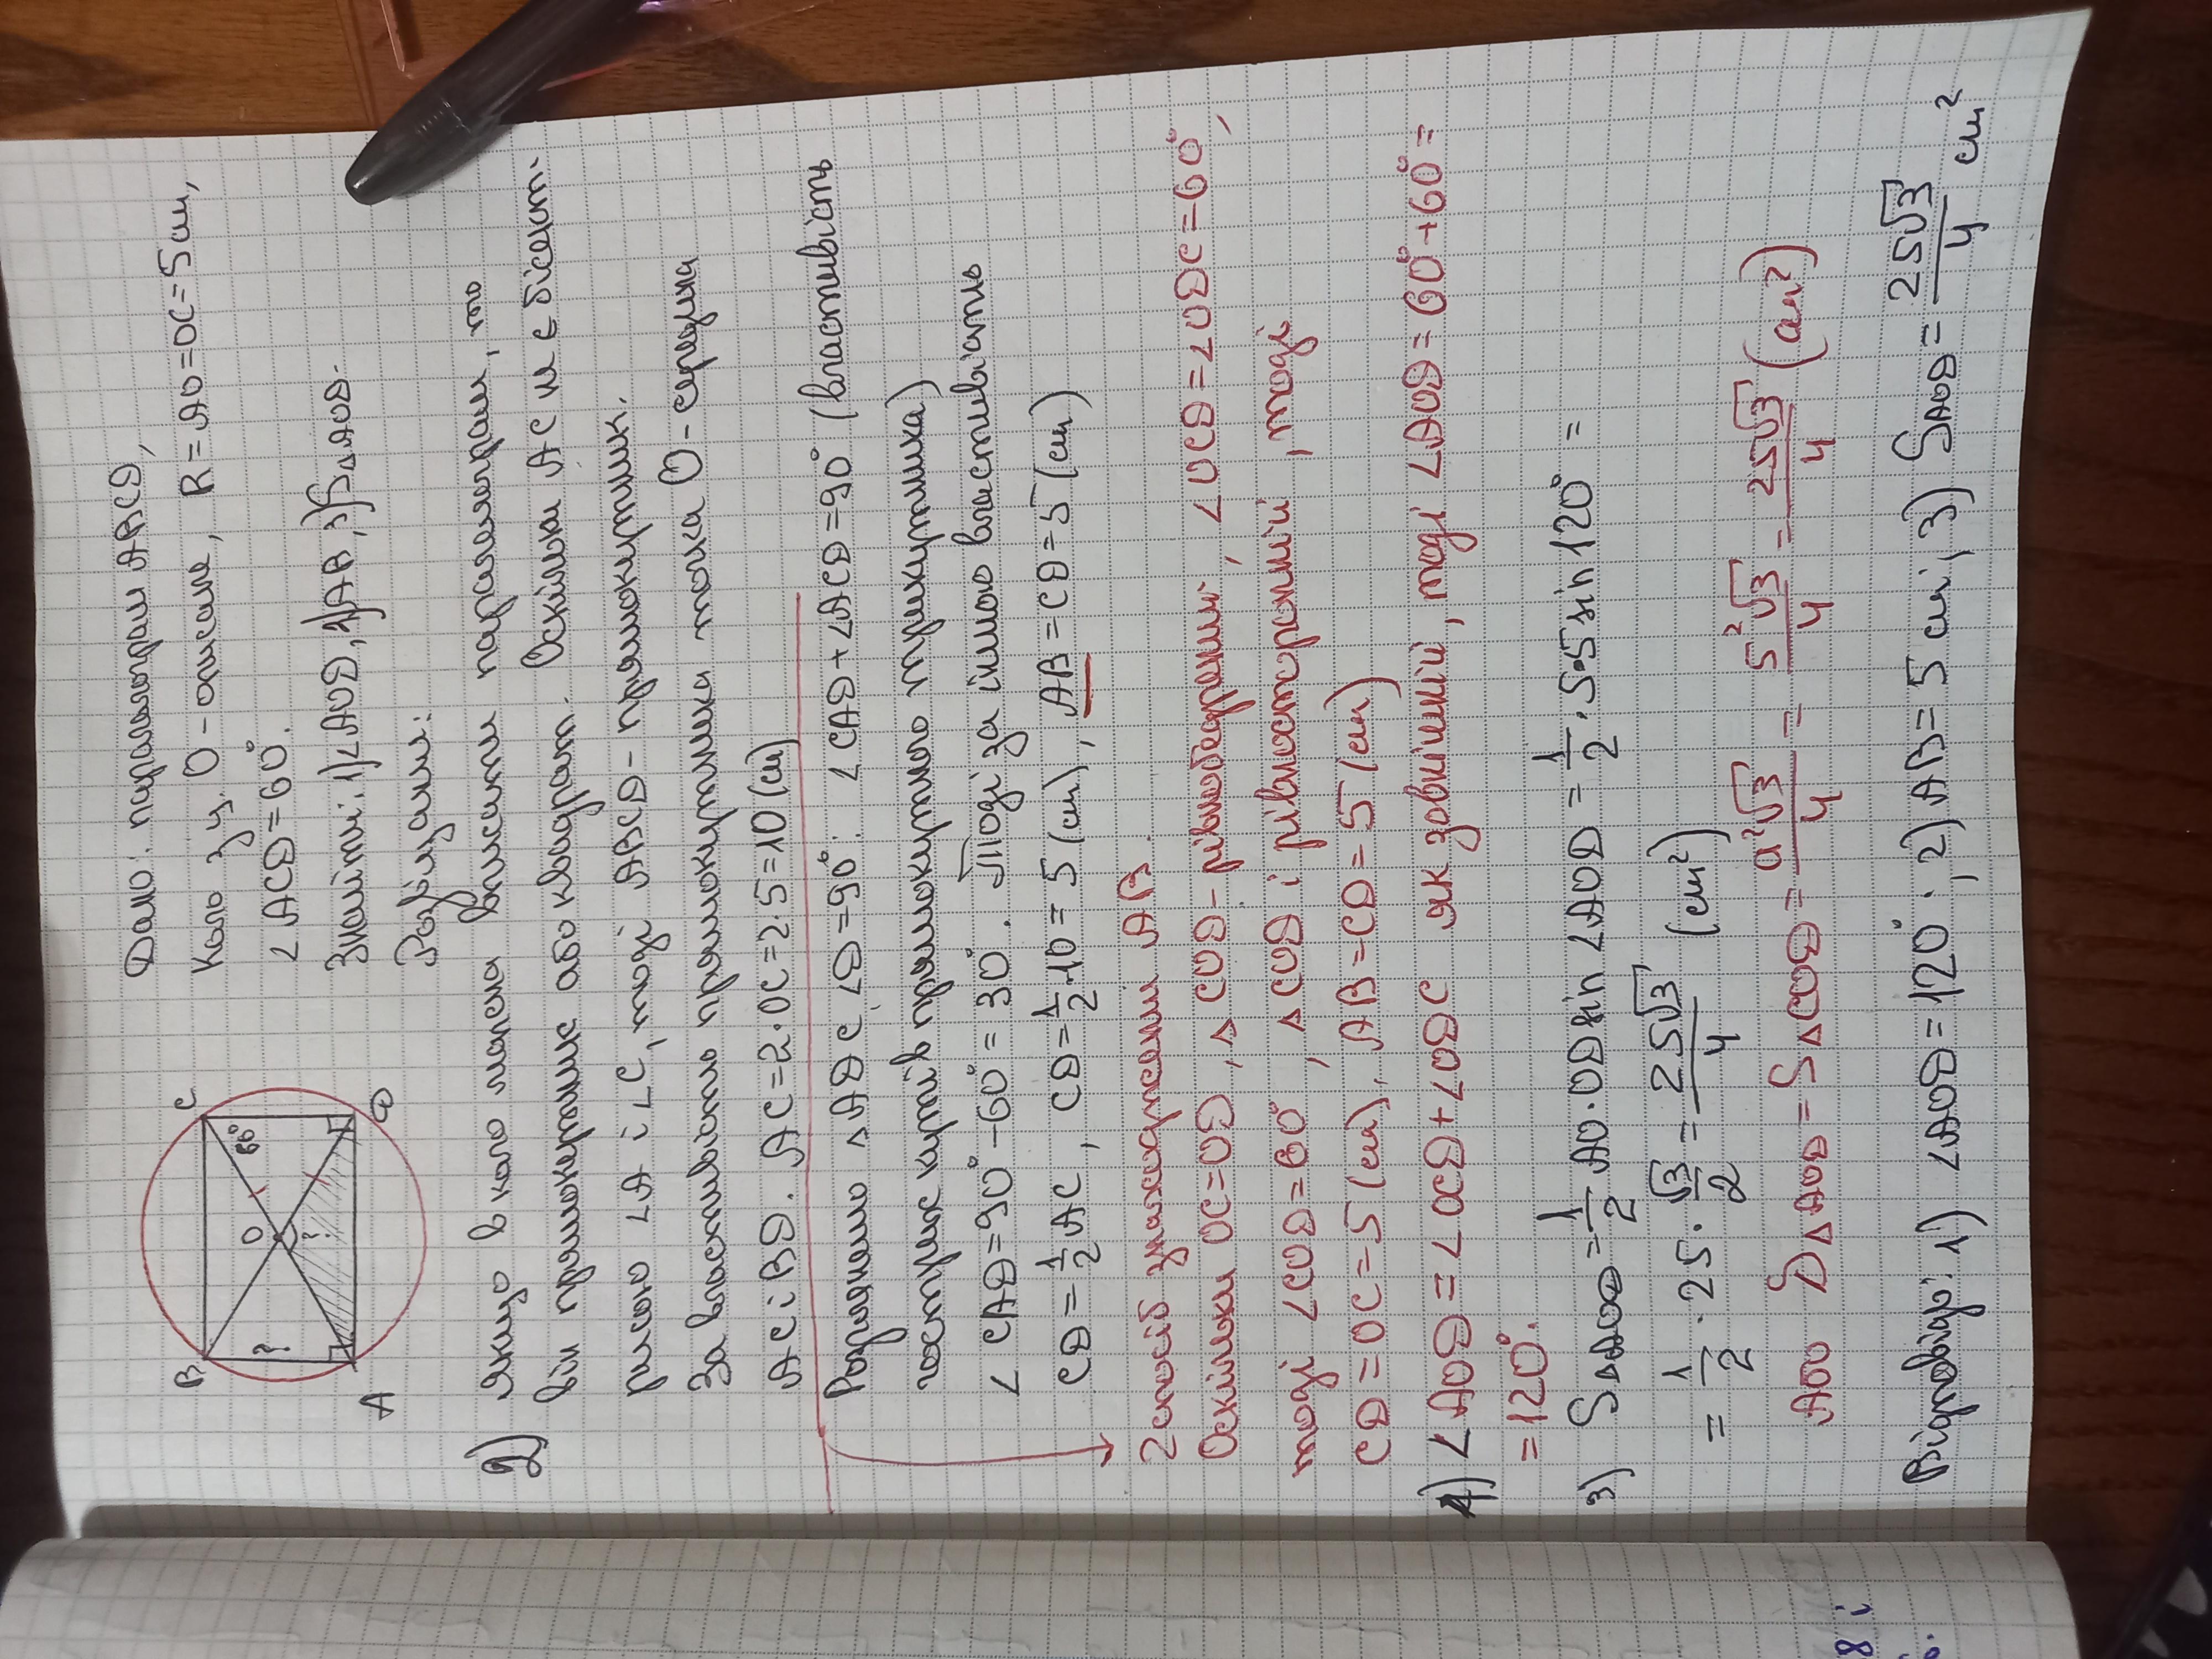 Дано: паралелограм ABCD,
коло з ц. O - описане, R = AO = OC = 5 см,
∠ACD = 60°.
Знайти: 1) ∠AOD, 2) AB, 3) S△AOD.
Розв'язання:
B
C
A
D
O
60°
?
?
2) Якщо в коло можна вписати паралелограм, то
він прямокутник або квадрат. Оскільки AC не є бісект-
рисою ∠A і ∠C, тоді ABCD - прямокутник.
За властивістю прямокутника точка O - середина
AC і BD. AC = 2·OC = 2·5 = 10 (см)
Розглянемо △ADC ∠D = 90°: ∠CAD + ∠ACD = 90° (властивість
гострих кутів прямокутного трикутника)
∠CAD = 90° - 60° = 30°. Тоді за іншою властивістю
CD = 1/2 AC, CD = 1/2·10 = 5 (см), AB = CD = 5 (см)
2 спосіб знаходження AB.
Оскільки OC = OD, △COD - рівнобедрений, ∠OCD = ∠ODC = 60°,
тоді ∠COD = 60°, △COD і рівносторонній, тоді
CD = OC = 5 (см), AB = CD = 5 (см)
1) ∠AOD = ∠OCD + ∠ODC як зовнішній, тоді ∠AOD = 60° + 60° =
= 120°.
3) S△AOD = 1/2 AO·OD sin ∠AOD = 1/2·5·5 sin 120° =
= 1/2·25·√3/2 = 25√3/4 (см²)
Або S△AOD = S△COD = a²√3/4 = 5²√3/4 = 25√3/4 (см²)
Відповідь: 1) ∠AOD = 120°; 2) AB = 5 см; 3) SAOD = 25√3/4 см²
8 і